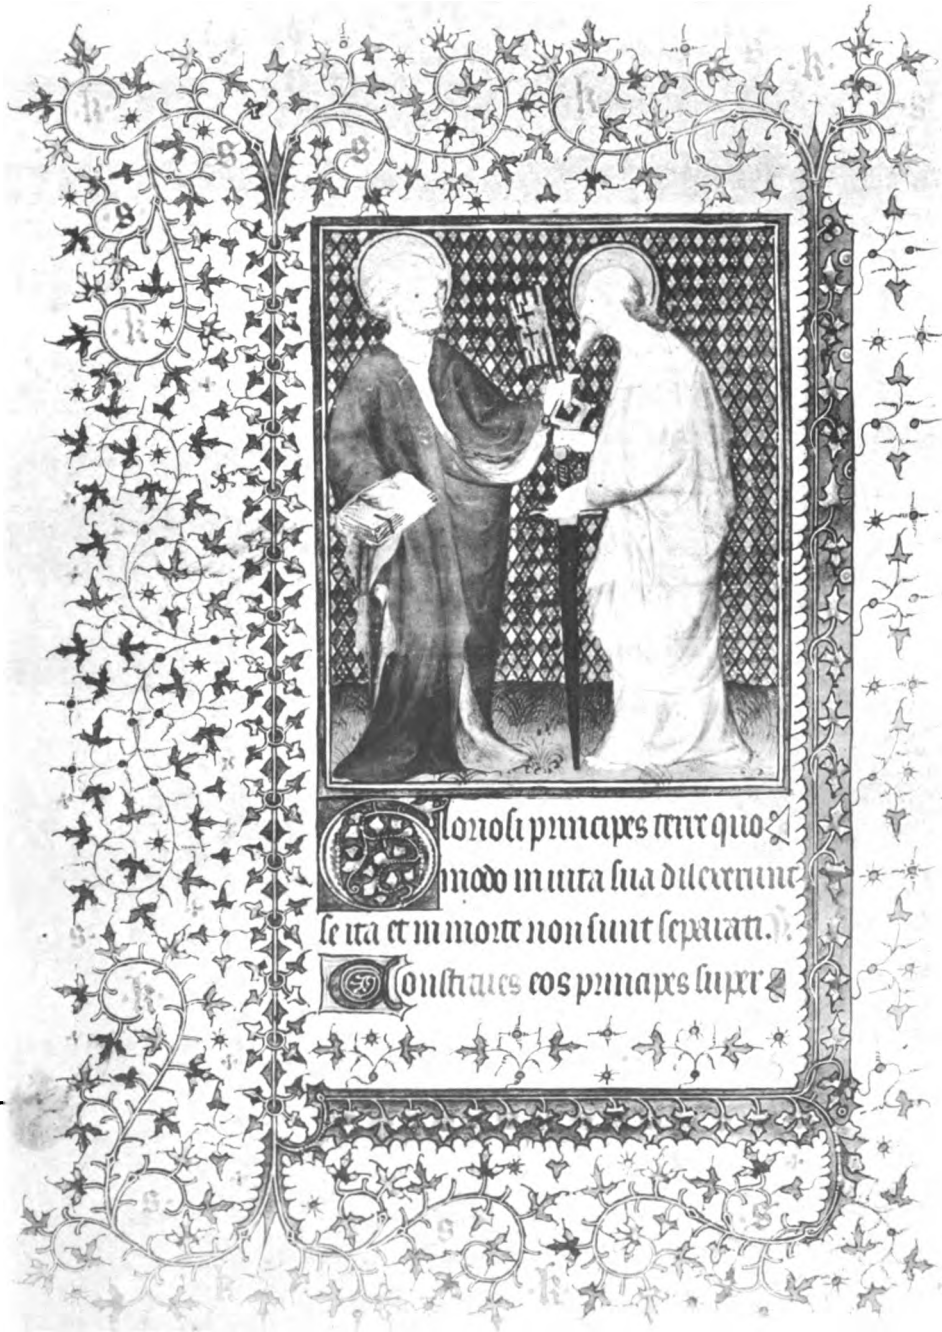 Gloriosi principes terre quo
modo in uita sua dilexerunt
se ita et in morte non sunt separati.
Constitues eos principes super
k
s
k
s
k
s
k
k
s
k
s
s
k
s
k